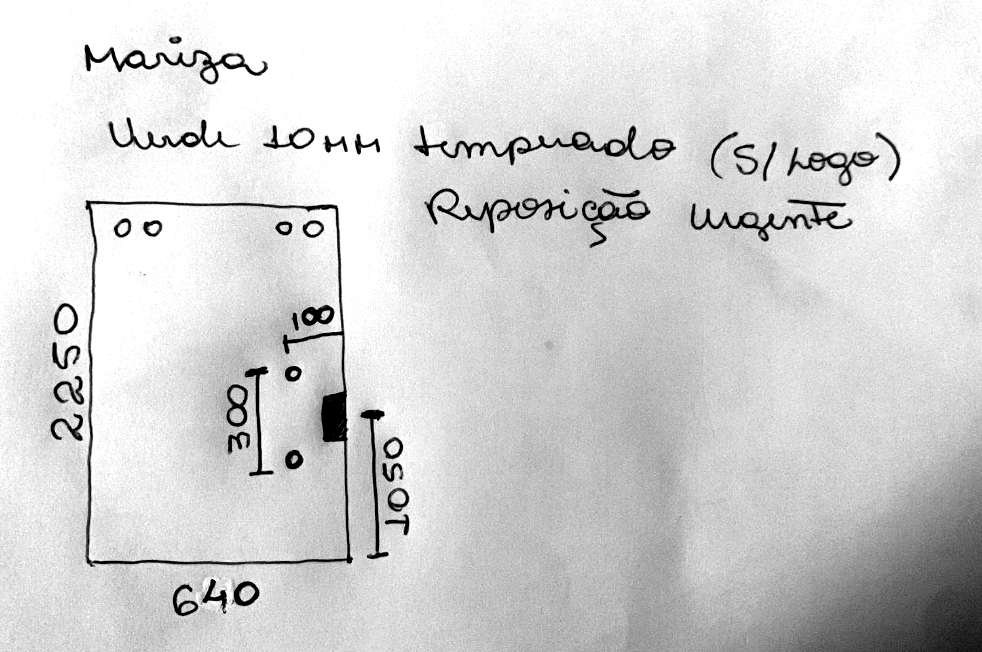 Mariza
Verde 10MM temperado (S/Logo)
Reposição urgente
100
2250
300
1050
640